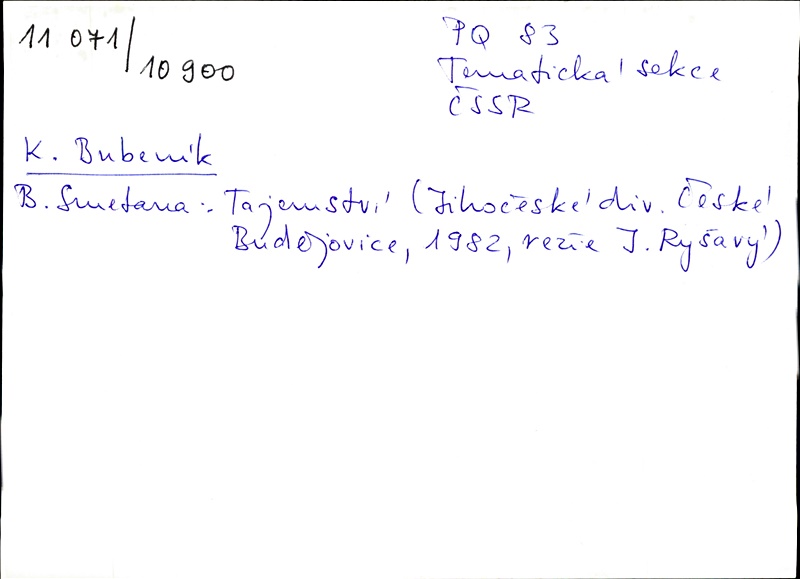 11 071/10 900
PQ 83
Tematická sekce
ČSSR
K. Bubeník
B. Smetana: Tajemství (Jihočeské div. České
Budějovice, 1982, režie J. Ryšavý)